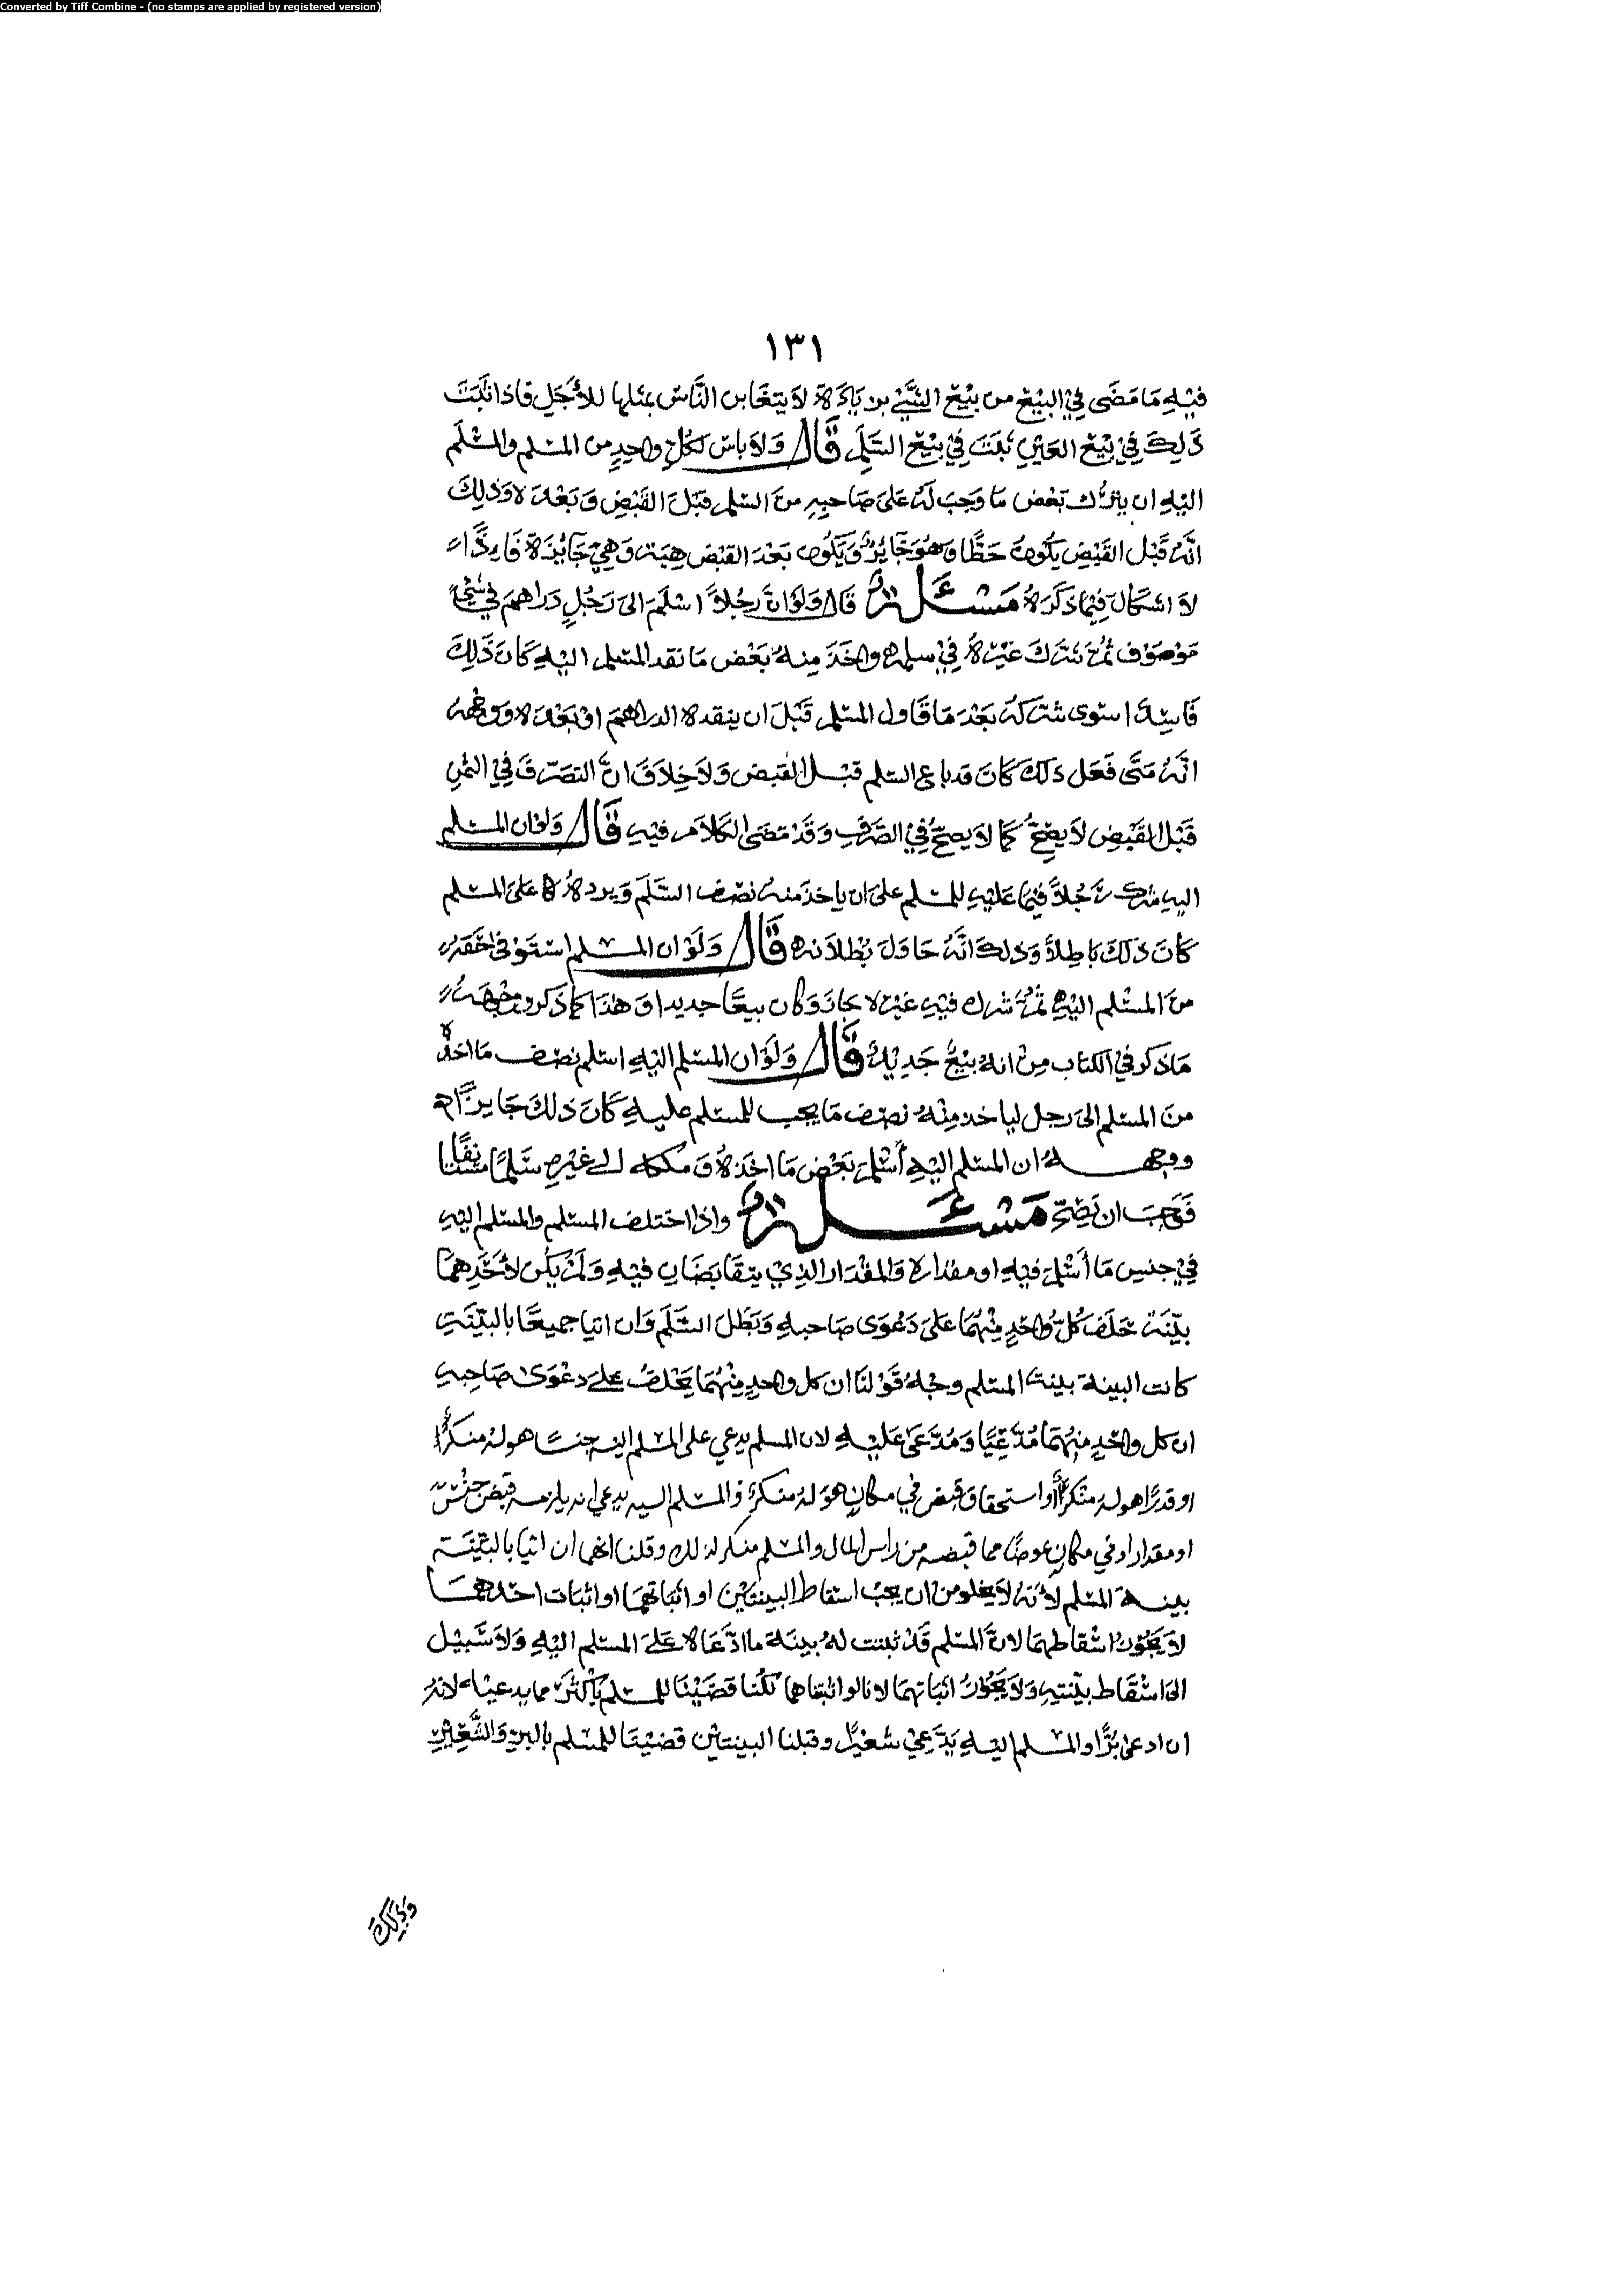 Converted by Tiff Combine - (no stamps are applied by registered version)
١٣١
فيْهِ مَا مَضَى فِي البيْع من بيْع الشَّيْ بزيادَة لا يتغَابن النَّاسُ بمثلها للأجَل فاذا ثبَتَ
ذَلِكَ فِي بَيْع العَيْنِ ثَبتَ فِيْ بيْع السَّلَم قَالَ وَلا باسَ لكُلِّ واحِدٍ من المسْلِم والمسْلَم
اليْهِ ان يترُك بعْض مَا وَجَبَ لَهُ عَلى صَاحِبهِ منَ السّلم قبْلَ القَبْضِ وَبَعْدَه وَذلِكَ
انَّهُ قَبْل القبْضِ يكُونُ حَطًّا وَهُوَ جَائِزٌ وَيكُون بَعْدَ القبْض هِبَة وَهيَ جَائِزَة فَاذًا
لاَ اشكالَ فِيْمَا ذكَرَهُ مَسْئَلَة قَالَ وَلَوْ انَّ رجُلاً اسْلَمَ الى رَجُلٍ دَرَاهمَ في شيْءٍ
مَوْصُوْف ثُمَّ شَرَكَ غيْرَهُ فِيْ سلمه واخَذَ مِنهُ بَعْض مَا نقد المسْلم اليْهِ كَانَ ذَلِكَ
فَاسِدًا سَوى شرَكَهُ بَعْدَ مَا قَاول المسْلم قَبْلَ ان ينقده الدراهمَ اوْ بَعْدَه وَوَجْهه
انَّهُ مَتَى فَعَل ذلكَ كَانَ قد باع السّلم قبْل القبض وَلاَ خِلاَفَ انَّ التصَرّفَ فِيْ الثمنِ
قَبْل القَبْضِ لاَ يَصِحُّ كمَا لاَ يَصِحُّ فِيْ الصَّرَفِ وَقَدْ مَضَى الكَلاَم فيْهِ قَالَ وَلوْ ان المسْلم
اليهِ شرك رَجُلاً فِيْمَا عَليْهِ للمسْلِم عَلى ان ياخذ منهُ نصْف السَّلَمَ وَيرده عَلى المسْلم
كَانَ ذلكَ باطِلاً وَذلك انَّهُ حَاوَل بُطْلاَنه قَالَ وَلَوْ ان المسْلم اسْتَوْفى حَقَّهُ
منَ المسْلم اليْهِ ثُمَّ شرك فيْهِ غيْره جازَ وَكان بيعًا جديدا وَهٰذا كمَا ذَكر وَوَجْهَهُ
مَا ذكر في الكتاب مِنْ انهُ بيْعٌ جَدِيْدٌ قَالَ وَلَوْ ان المسْلم اليْهِ اسْلم نصْف مَا اخذَهُ
منَ المسْلم الى رجل لياخذ مِنْهُ نصْف مَا يجب للمسْلم عليْهِ كَانَ ذلكَ جَايزًا
ووجهـهُ ان المسْلم اليْهِ أسْلمَ بَعْضَ مَا اخَذهُ وَملكه الى غيْره سَلمًا مستانفًا
فَوَجَبَ ان يَصِحَّ مَسْئَلَة واذا اختلف المسْلم والمسْلم اليْهِ
فِيْ جنسِ مَا أسْلمَ فيْهِ او مقدَاره وَالمقْدَار الذِيْ يتقابَضَانِ فيْهِ وَلَمْ يكُن لأَحَدِهمَا
بيّنَة حَلَفَ كُلُّ وَاحِدٍ مِنْهُمَا عَلى دَعْوَى صَاحبهِ وَبَطَل السَّلَم وَان اتيا جميعًا بالبيّنَة
كانت البينة بينة المسْلم وجهُ قَوْلنَا ان كل واحدٍ مِنْهُمَا يَحْلفُ على دعْوَى صَاحِبهِ
ان كل واحدٍ منهُمَا مُدَّعِيًا وَمُدَّعى عَليْهِ لان المسلم يدعي على المسْلم اليه جنسًا هو لهُ منكرٌ
او قدرًا هو لهُ منكرٌ أو استحقاق قبض في مكانٍ هوَ لهُ منكرٌ والمسْلم اليه يدعي انه يلزمه قبض جنْسٍ
او مقدار او في مكانٍ عوضًا مما قبضه من راس المال والمسْلم منكر لذلك وقلنا انهما ان اتيا بالبيّنة
بينة المسْلم لأنّهُ لاَ يخلو من ان يجبَ اسقاط البينتيْن او اثباتهمَا او اثبات احدهمَا
لاَ يَجُوْزُ اسْقاطهمَا لانَّ المسْلم قدْ ثبتت لهُ بينَة ما ادَّعَاه عَلىَ المسلم اليْهِ وَلاَ سَبيْل
الى اسْقاط بيّنتهِ وَلاَ يَجُوْزُ اثباتهمَا لانا لو اثبتناهما لكُنا قضَيْنَا للمسْلم بأكثرَ مما يدعيْه لانهُ
ان ادعى بُرًّا والمسْلم اليْهِ يَدَّعِيْ شعيْرًا وقبلنا البينتيْن قضيْنَا للمسْلم بالبر وَالشَّعِيْرِ
وَذَلِكَ